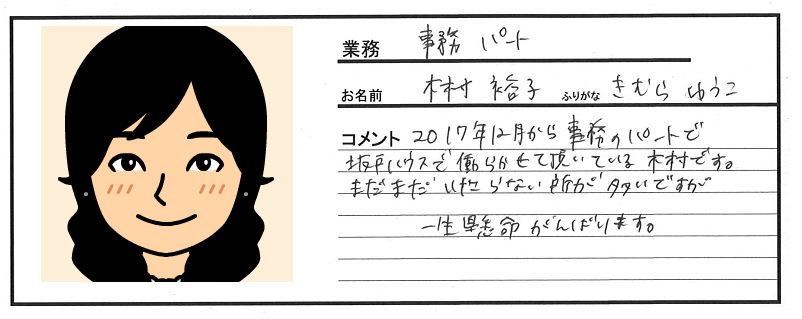 業務 事務 パート
お名前 木村 裕子 ふりがな きむら ゆうこ
コメント 2017年12月から事務のパートで
坂戸ハウスで働らかせて頂いている木村です。
まだまだいたらない所が多いですが
一生懸命がんばります。